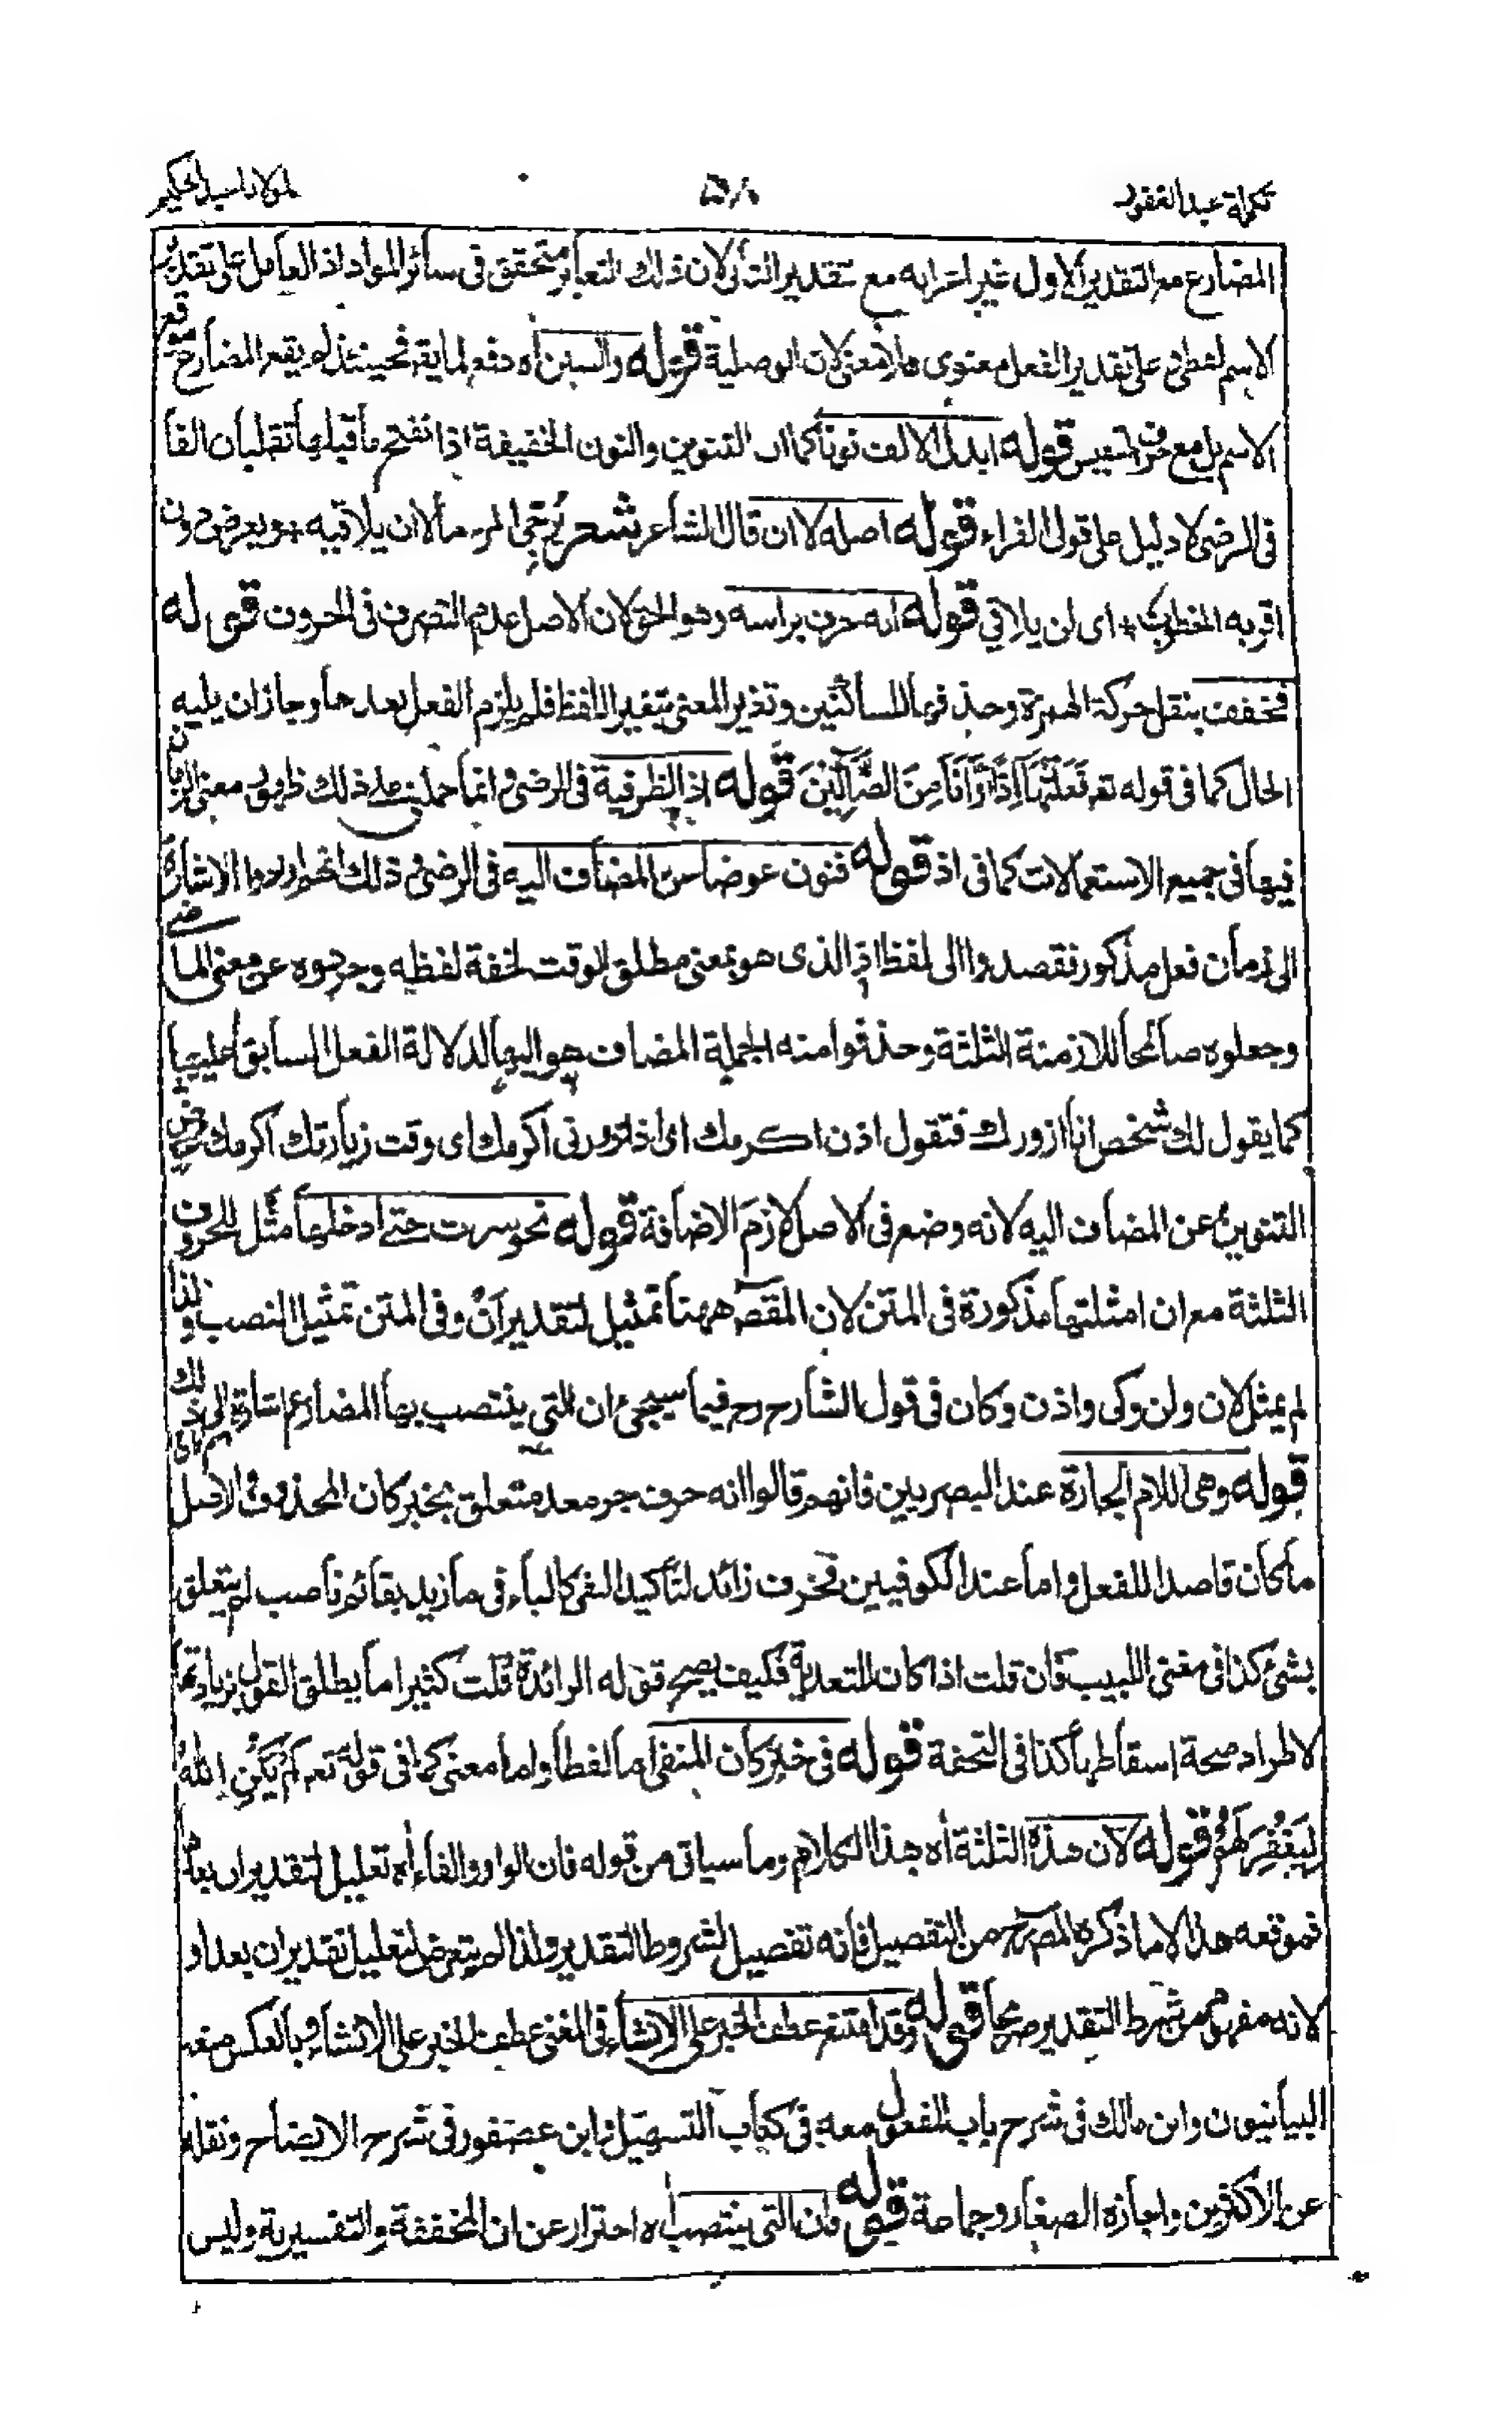 تكملة عبد الغفور
٥٨
لمولانا عبد الحكيم
المضارع مع التقدير الاول غير اعرابه مع تقدير الثانى لان ذلك التعاير متحقق فى سائر المواد اذ العامل على تقدير
الاسم لفظى وعلى تقدير الفعل معنوى فلا معنى لان الوصلية قوله والسين اه دفع لما يقم فحينئذ لم يقع المضارع موقع
الاسم بل مع حرف التنفيس قوله ابدل الالف نونا كما ان التنوين والنون الخفيفة اذا انفتح ما قبلها تقلبان الفا
فى الرضى لا دليل على قول الفراء قوله اصله لا ان قال الشاعر شعر يرجى المرء ما لا ان يلاقيه * ويعرض دون
اقربه الخطوب * اى لن يلاقي قوله انه حرف براسه وهو الحق لان الاصل عدم التصرف فى الحروف قوله
فخففت بنقل حركة الهمزة وحذفها للساكنين وتغير المعنى بتغير اللفظ فلم يلزم الفعل بعدها وجاز ان يليه
الحال كما فى قوله تعم فَعَلْتُهَا اِذًا وَّاَنَا مِنَ الضَّالِّيْنَ قوله اذ الظرفية فى الرضى وانما حملنى على ذلك ظهور معنى الزمان
فيها فى جميع الاستعمالات كما فى اذ قوله فنون عوضا من المضاف اليه فى الرضى وذلك انهم ارادوا الاشارة
الى زمان فعل مذكور فقصدوا الى لفظ اذ الذى هو بمعنى مطلق الوقت لخفة لفظه وجردوه عن معنى الماضى
وجعلوه صالحا للازمنة الثلثة وحذفوا منه الجملة المضاف هو اليها لدلالة الفعل السابق عليها
كما يقول لك شخص انا ازورك فتقول اذن اكرمك اى اذ تزورنى اكرمك اى وقت زيارتك اكرمك وعوض
التنوين عن المضاف اليه لانه وضع فى الاصل لازم الاضافة قوله نحو سرت حتى ادخلها مثل للحروف
الثلثة مع ان امثلتها مذكورة فى المتن لان المقصم ههنا تمثيل لتقدير اَنْ وفى المتن تمثيل النصب ولذا
لم يمثل لان ولن وكى واذن وكان فى قول الشارح رح فيما سيجئ ان التى ينتصب بها المضارع اشارة الى ذلك
قوله وهى اللام الجارة عند البصريين فانهم قالوا انه حرف جر معد متعلق بخبر كان المحذوف والاصل
ما كان قاصدا للفعل واما عند الكوفيين فحرف زائد لتأكيد النفى كالباء فى ما زيد بقائم ناصب لم يتعلق
بشئ كذا فى مغنى اللبيب فان قلت اذا كان للتعدية فكيف يصح قوله الزائدة قلت كثيرا ما يطلق القول بزيادتها
لاطراد صحة اسقاطها كذا فى التحفة قوله فى خبر كان المنفى اما لفظا واما معنى كما فى قوله تعم لَمْ يَكُنِ اللّٰهُ
لِيَغْفِرَ لَهُمْ قوله لان هذه الثلثة اه هذا الكلام وما سياتى من قوله فان الواو والفاء اه تعليل لتقدير ان بعدها
فموقعه هذا لا ما ذكره المصم رح من التفصيل فانه تفصيل لشروط التقدير ولذا لم يتعرض لتعليل تقدير ان بعد او
لانه مفهوم من شرط التقدير صريحا قوله وقد امتنع عطف الخبر على الانشاء فى المغنى عطف الخبر على الانشاء وبالعكس منعه
البيانيون وابن مالك فى شرح باب المفعول معه فى كتاب التسهيل وابن عصفور فى شرح الايضاح ونقله
عن الاكثرين واجازه الصفار وجماعة قوله وان التى ينتصب اه احتراز عن ان المخففة والتفسيرية وليس